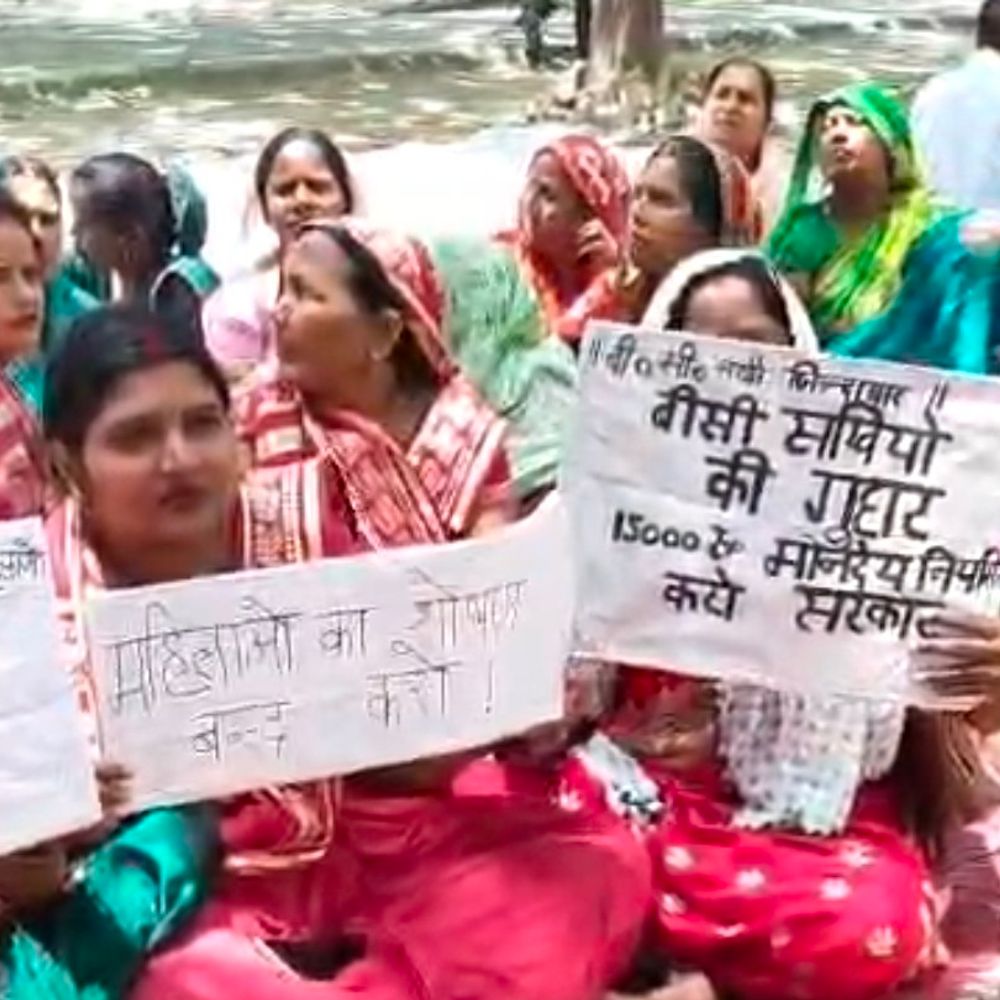 महिलाओ का शोषण
बन्द करो !
॥ वी० सी० सखी जिन्दाबाद ॥
बीसी सखियो
की गुहार
15000 रु० मानदेय नियमित
करो सरकार